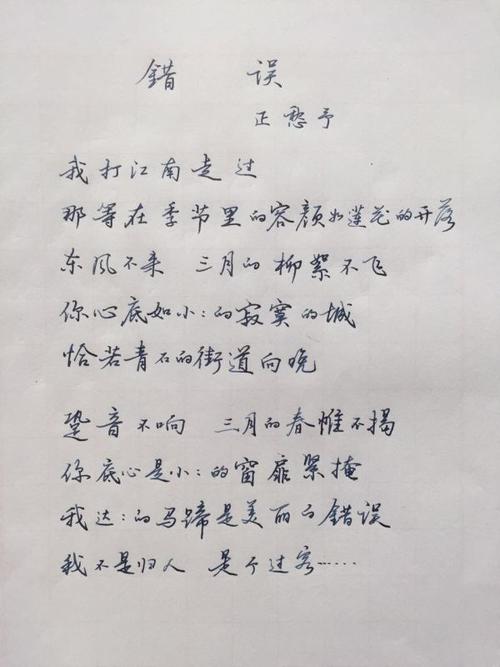 错 误
正愁予
我打江南走过
那等在季节里的容颜如莲花的开落
东风不来 三月的柳絮不飞
你心底如小：的寂寞的城
恰若青石的街道向晚
跫音不响 三月的春帷不揭
你底心是小：的窗扉紧掩
我达：的马蹄是美丽的错误
我不是归人 是个过客……